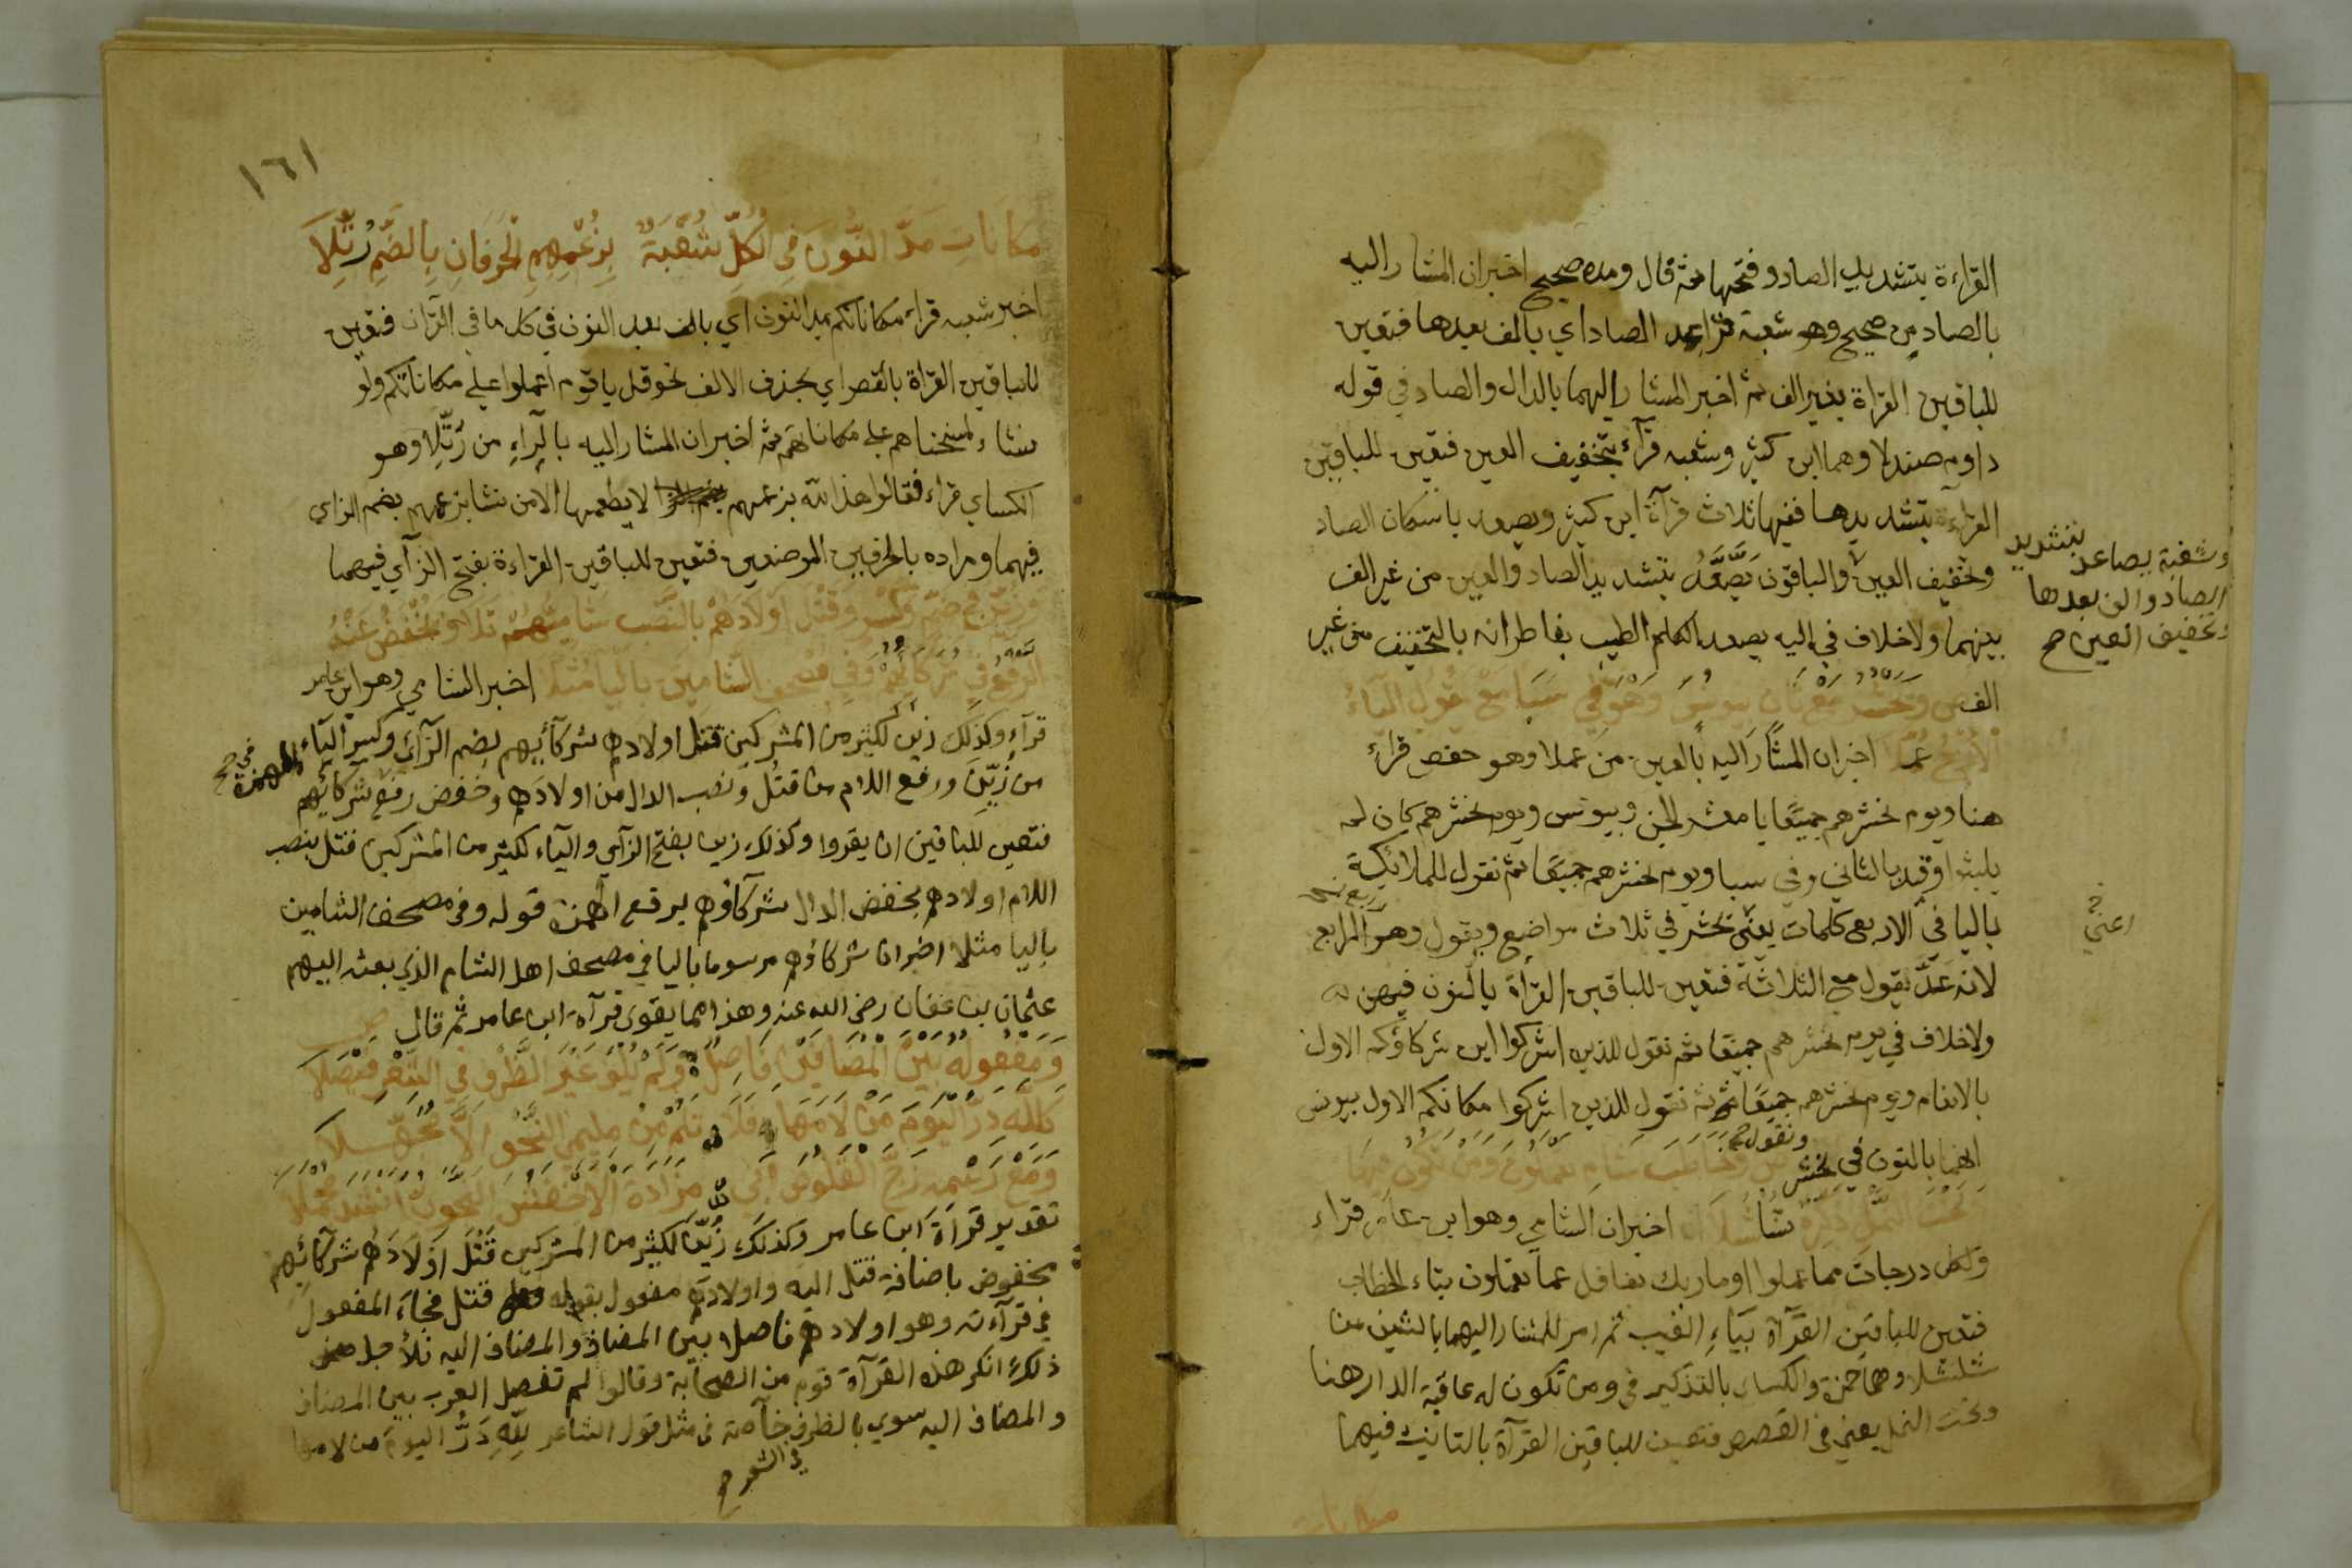 القراءة بتشديد الصاد وفتحها ثم قال ومده صحيح اخبر ان المشار اليه
بالصاد من صحيح وهو شعبة قرا بمد الصاد اي بالف بعدها فتعين
للباقين القراة بغير الف ثم اخبر المشار اليهما بالدال والصاد في قوله
داوم صندلا وهما ابن كثير وشعبه قرآ بتخفيف العين فتعين للباقين
القراءة بتشديدها ففيها ثلاث قرآة ابن كثير ويصعد باسكان الصاد
وتخفيف العين والباقون يَصَّعَّدُ بتشديد الصاد والعين من غير الف
بينهما ولا خلاف في اليه يصعد الكلم الطيب بفاطر انه بالتخفيف من غير
وشعبة يصاعد بتشديد
الصاد والف بعدها
وتخفيف العين صح
الف ونحشر مع ثان بيونس وهو في سبا مع نقول اليا في
الاربع عملا اخبر ان المشار اليه بالعين من عملا وهو حفص قرا
هنا ويوم نحشرهم جميعا يا معشر الجن وبيونس ويوم نحشرهم كان لم
يلبثوا وقيد بالثاني وفي سبا ويوم نحشرهم جميعا ثم نقول للملائكة
باليا في الاربع كلمات يعني نحشر في ثلاث مواضع ويقول وهو الرابع
اعني
لانه عدَّ يقول مع الثلاثة فتعين للباقين القراة بالنون فيهن
ولا خلاف في يوم نحشرهم جميعا ثم نقول للذين اشركوا اين شركاؤكم الاول
بالانعام ويوم نحشرهم جميعا ثم نقول للذين اشركوا مكانكم الاول بيونس
انهما بالنون في نحشر ونقول وخاطب شام تعملون ومن تكون فيها
وتحت النمل ذكره شلشلا اخبر ان الشامي وهو ابن عامر قراء
ولكل درجات مما عملوا وما ربك بغافل عما تعملون بتاء الخطاب
فتعين للباقين القرآة بياء الغيب ثم امر للمشار اليهما بالشين من
شلشلا وهما حمزة والكساي بالتذكير في ومن تكون له عاقبة الدار هنا
وتحت النمل يعني في القصص فتعين للباقين القرآة بالتانيث فيهما
مكانات
١٦١
مكانات مدّ النون في الكلّ شعبة بزعمهم الحرفان بالضم رتّلا
اخبر شعبه قراء مكاناتكم بمد النون اي بالف بعد النون في كل ما في القرآن فتعين
للباقين القراة بالقصر اي بحذف الالف نحو قل يا قوم اعملوا على مكاناتكم ولو
نشاء لمسخناهم على مكاناتهم ثم اخبر ان المشار اليه بالرآء من رَتّلا وهو
الكساي قراء فقالوا هذا لله بزعمهم لا يطعمها الا من نشا بزعمهم بضم الزاي
فيهما ومراده بالحرفين الموضعين فتعين للباقين القراءة بفتح الزآي فيهما
وزين في ضم وكسر وقتل اولادهم بالنصب شاميهم تلا ويخفض عنه
الرفع في شركاؤهم وفي مصحف الشامين باليا مثلا اخبر الشامي وهو ابن عامر
قرآء وكذلك زين لكثير من المشركين قتل اولادهم شركآئيهم بضم الزآي وكسر الياء
من زُيِّنَ ورفع اللام من قتلُ ونصب الدال من اولادَهم وخفض رفع شركائهم
في الهمزة صح
فتعين للباقين ان يقروا وكذلك زين بفتح الزآي والياء لكثير من المشركين قتل بنصب
اللام اولادهم بخفض الدال شركآؤهم برفع الهمزة قوله وفي مصحف الشامين
باليا مثلا اخبر ان شركاؤهم مرسوما باليا في مصحف اهل الشام الذي بعثه اليهم
عثمان بن عفان رضي الله عنه وهذا مما يقوي قرآة ابن عامر ثم قال
ومفعوله بين المضافين فاصل ولم يلف غير الظرف في الشعر فيصلا
كلله درّ اليوم من لامها فلا تلم من مليمي النحو الا مجهلا
ومع رسمه زج القلوص ابي مزادة الاخفش النحوي انشد مجملا
تقدير قرآة ابن عامر وكذلك زُيّن لكثير من المشركين قَتْلُ اولادَهم شركآئِهم
مخفوض باضافة قتل اليه واولادهم مفعول بقوله قتل فجاء المفعول
في قرآءته وهو اولادهم فاصلا بين المضاف والمضاف اليه فلأجل
ذلك انكر هذه القرآة قوم من الصحابة وقالوا لم تفصل العرب بين المضاف
والمضاف اليه سوي بالظرف خآصة في مثل قول الشاعر للهِ دَرُّ اليوم من لامها
في الشعر صح